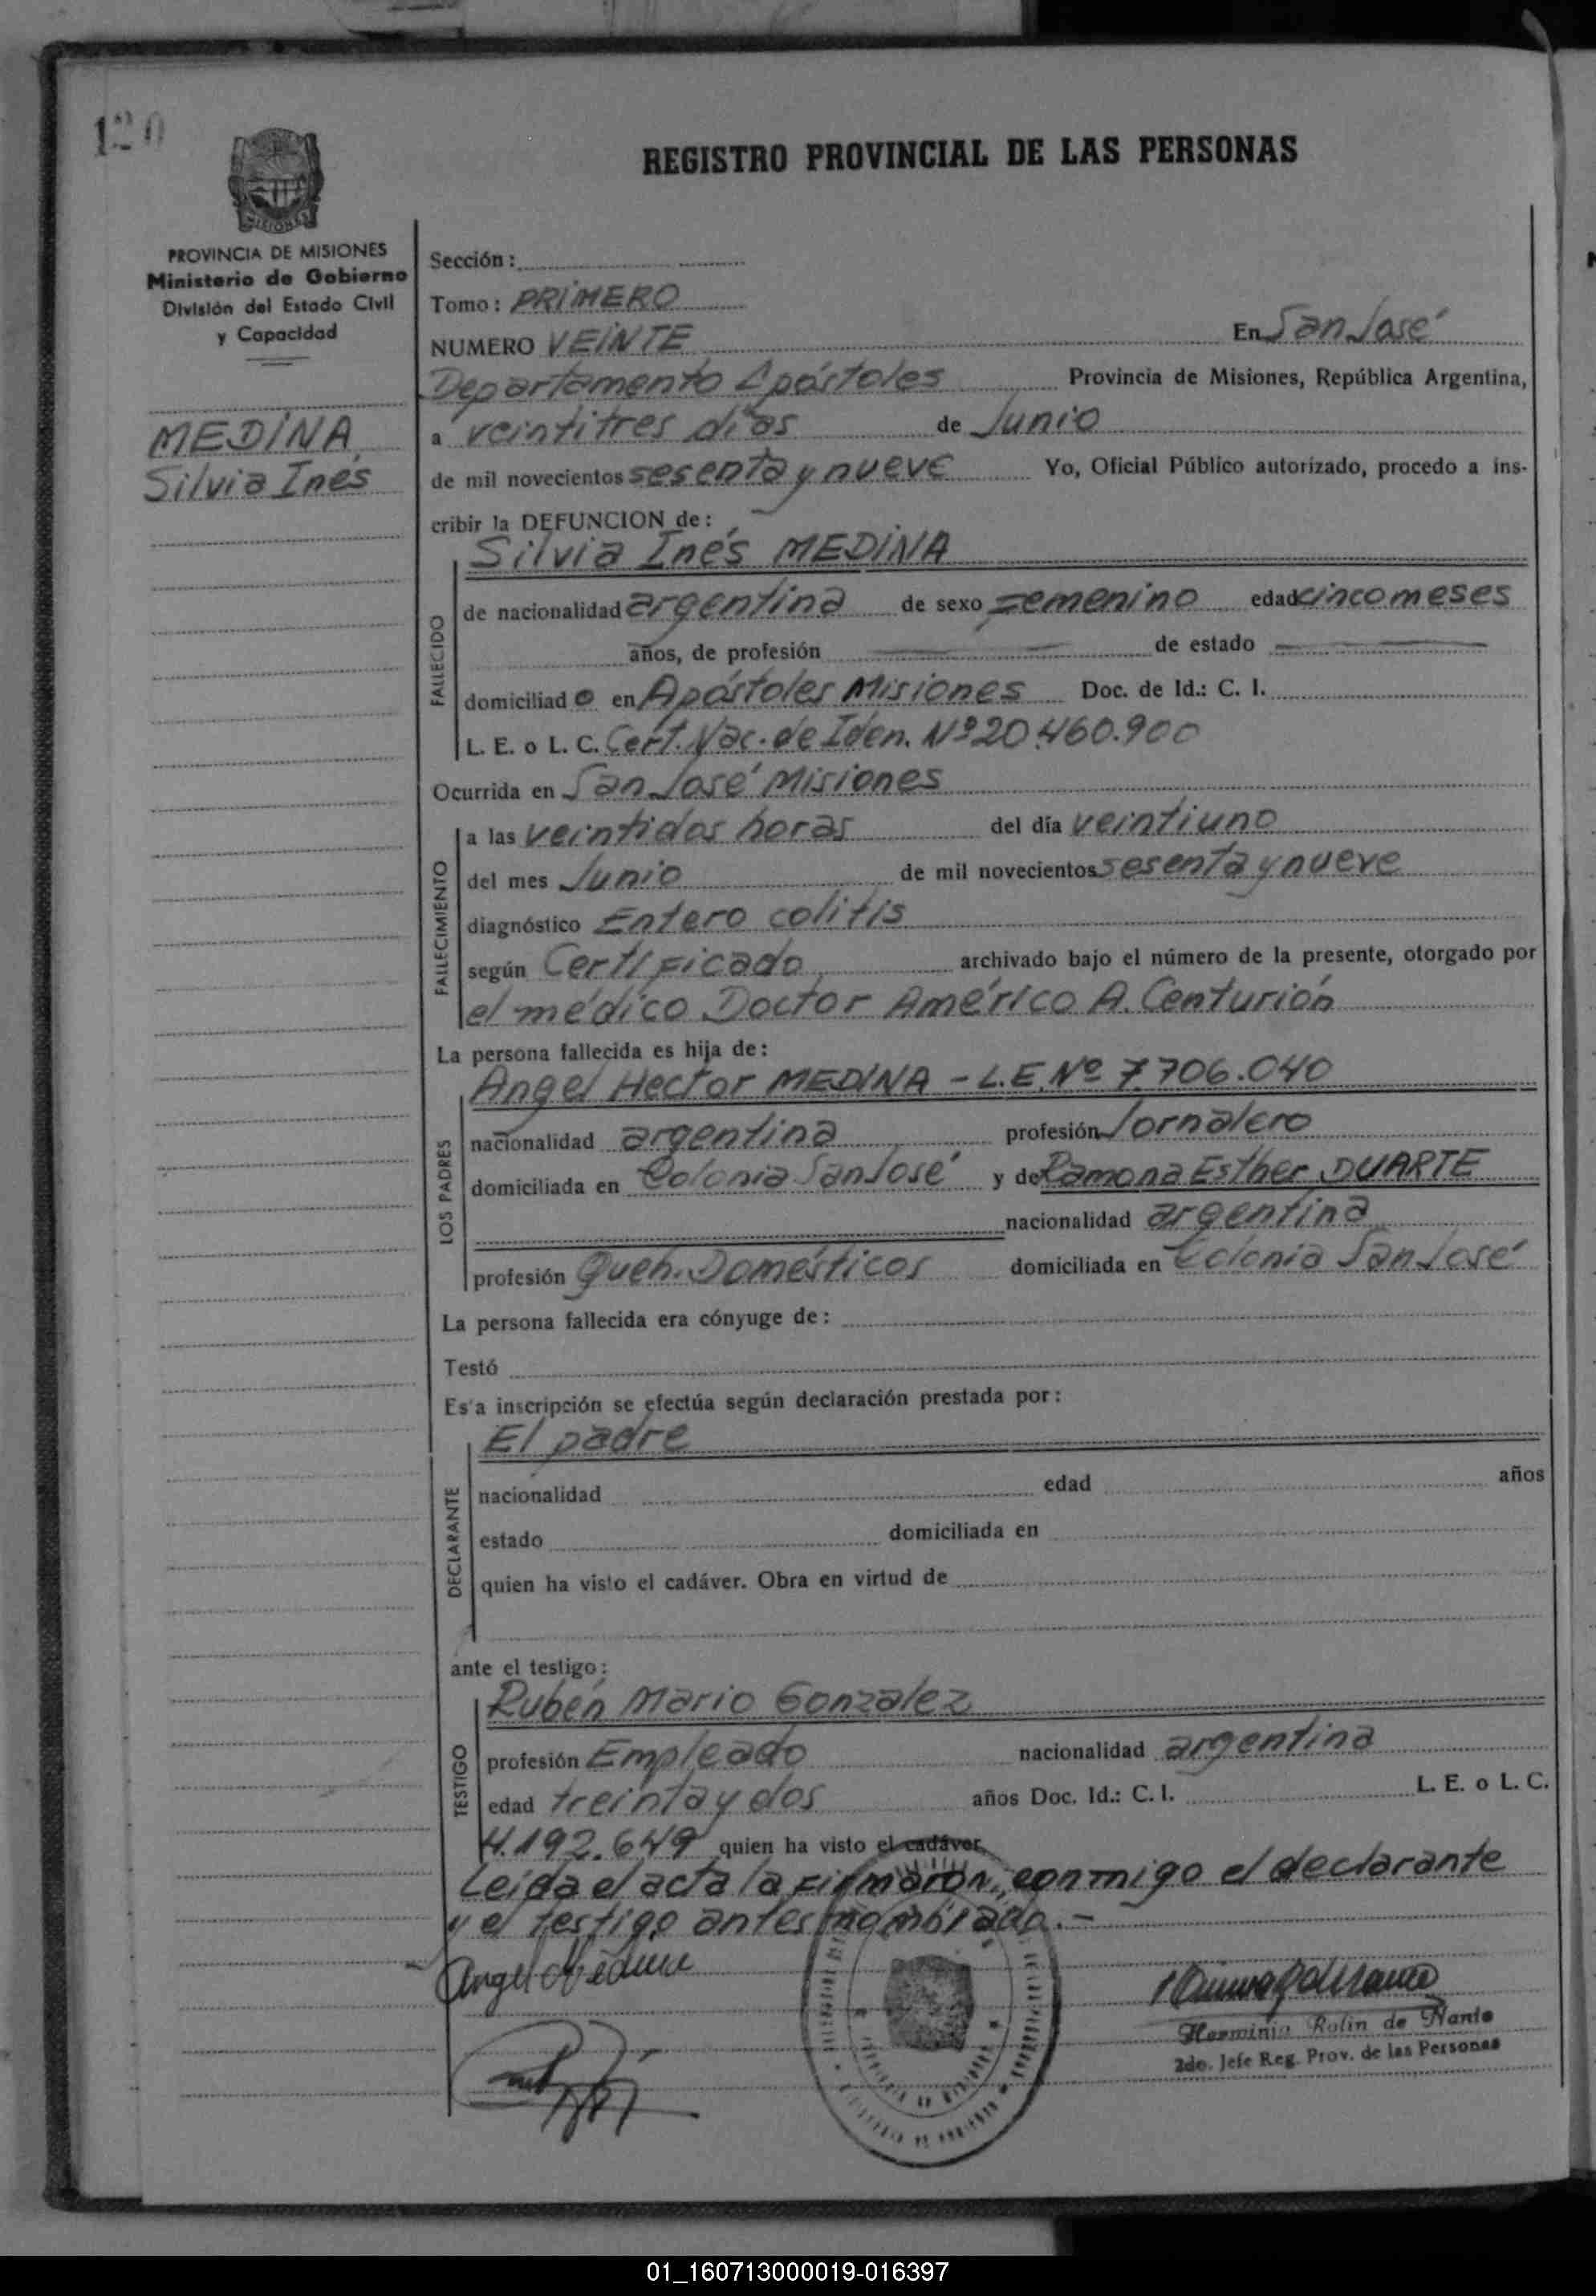 120
REGISTRO PROVINCIAL DE LAS PERSONAS
MISIONES
PROVINCIA DE MISIONES
Ministerio de Gobierno
División del Estado Civil
y Capacidad
MEDINA
Silvia Inés
Sección:
Tomo: PRIMERO
NUMERO VEINTE En San José
Departamento Apóstoles Provincia de Misiones, República Argentina,
a veintitres días de Junio
de mil novecientos sesenta y nueve Yo, Oficial Público autorizado, procedo a ins-
cribir la DEFUNCION de:
Silvia Inés MEDINA
FALLECIDO
de nacionalidad argentina de sexo Femenino edad cinco meses
años, de profesión de estado
domiciliado en Apóstoles Misiones Doc. de Id.: C. I.
L. E. o L. C. Cert. Nac. de Iden. Nº 20.460.900
Ocurrida en San José Misiones
FALLECIMIENTO
a las veintidos horas del día veintiuno
del mes Junio de mil novecientos sesenta y nueve
diagnóstico Entero colitis
según Certificado archivado bajo el número de la presente, otorgado por
el médico Doctor Américo A. Centurión
La persona fallecida es hija de:
Angel Hector MEDINA - L.E. Nº 7.706.040
LOS PADRES
nacionalidad argentina profesión Jornalero
domiciliada en Colonia San José y de Ramona Esther DUARTE
nacionalidad argentina
profesión Queh. Domésticos domiciliada en Colonia San José
La persona fallecida era cónyuge de:
Testó
Es'a inscripción se efectúa según declaración prestada por:
El padre
DECLARANTE
nacionalidad edad años
estado domiciliada en
quien ha visto el cadáver. Obra en virtud de
ante el testigo:
Rubén Mario Gonzalez
TESTIGO
profesión Empleado nacionalidad argentina
edad treinta y dos años Doc. Id.: C. I. L. E. o L. C.
4.192.649 quien ha visto el cadáver.
Leida el acta la firmaron, conmigo el declarante
y el testigo antes nombrado.-
Angel Medina
Herminia Rolin de Nante
2do. Jefe Reg. Prov. de las Personas
01_160713000019-016397